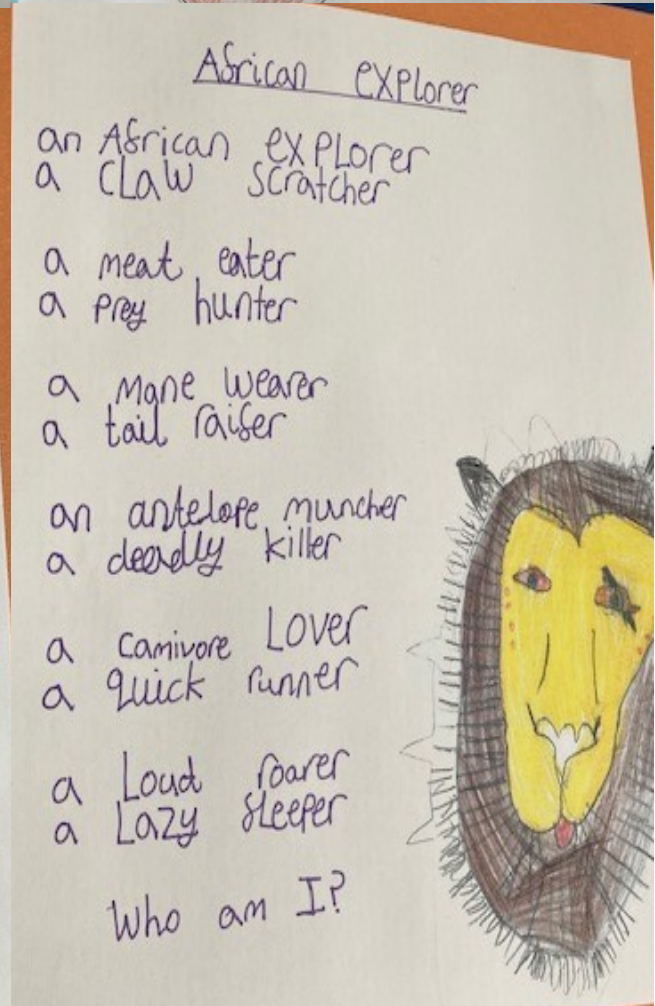 African explorer
an African explorer
a claw scratcher
a meat eater
a prey hunter
a mane wearer
a tail raiser
an antelope muncher
a deadly killer
a carnivore Lover
a quick runner
a Loud roarer
a Lazy sleeper
Who am I?